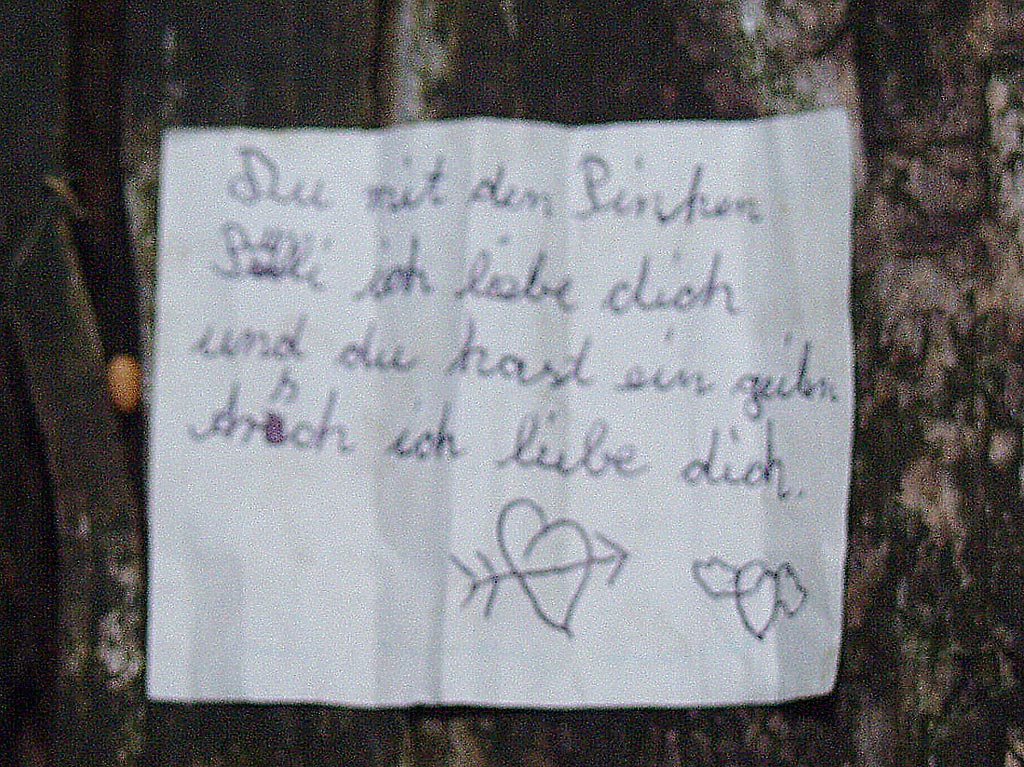 Du mit den Pinken
Pulli ich liebe dich
und du hast ein geilen
ich liebe dich.